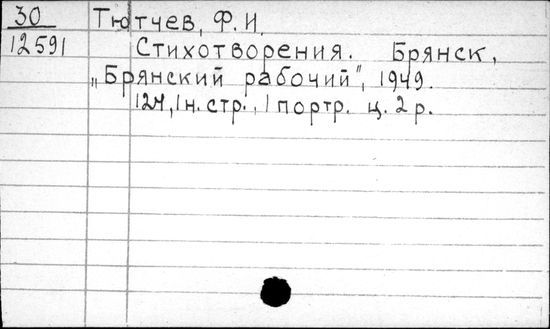 30 Тютчев, Ф.И.
12591 Стихотворения. Брянск,
„Брянский рабочий", 1949.
124, 1 н. стр., 1 портр. ц. 2 р.